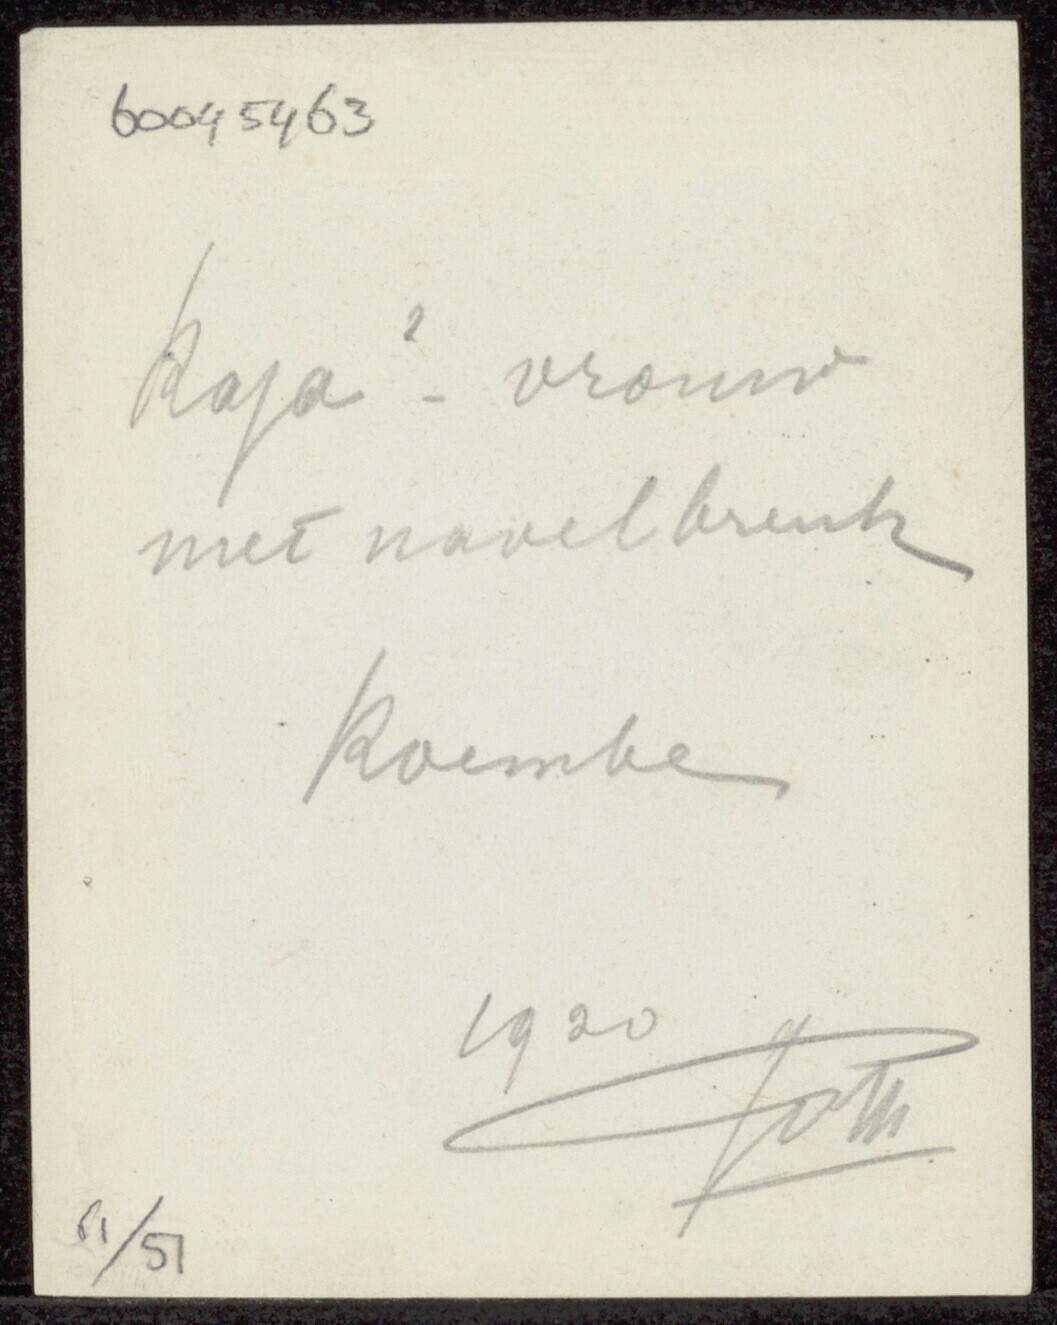 60045463
Kaja² - vrouw
met navelbreuk
Koembe
1920
51